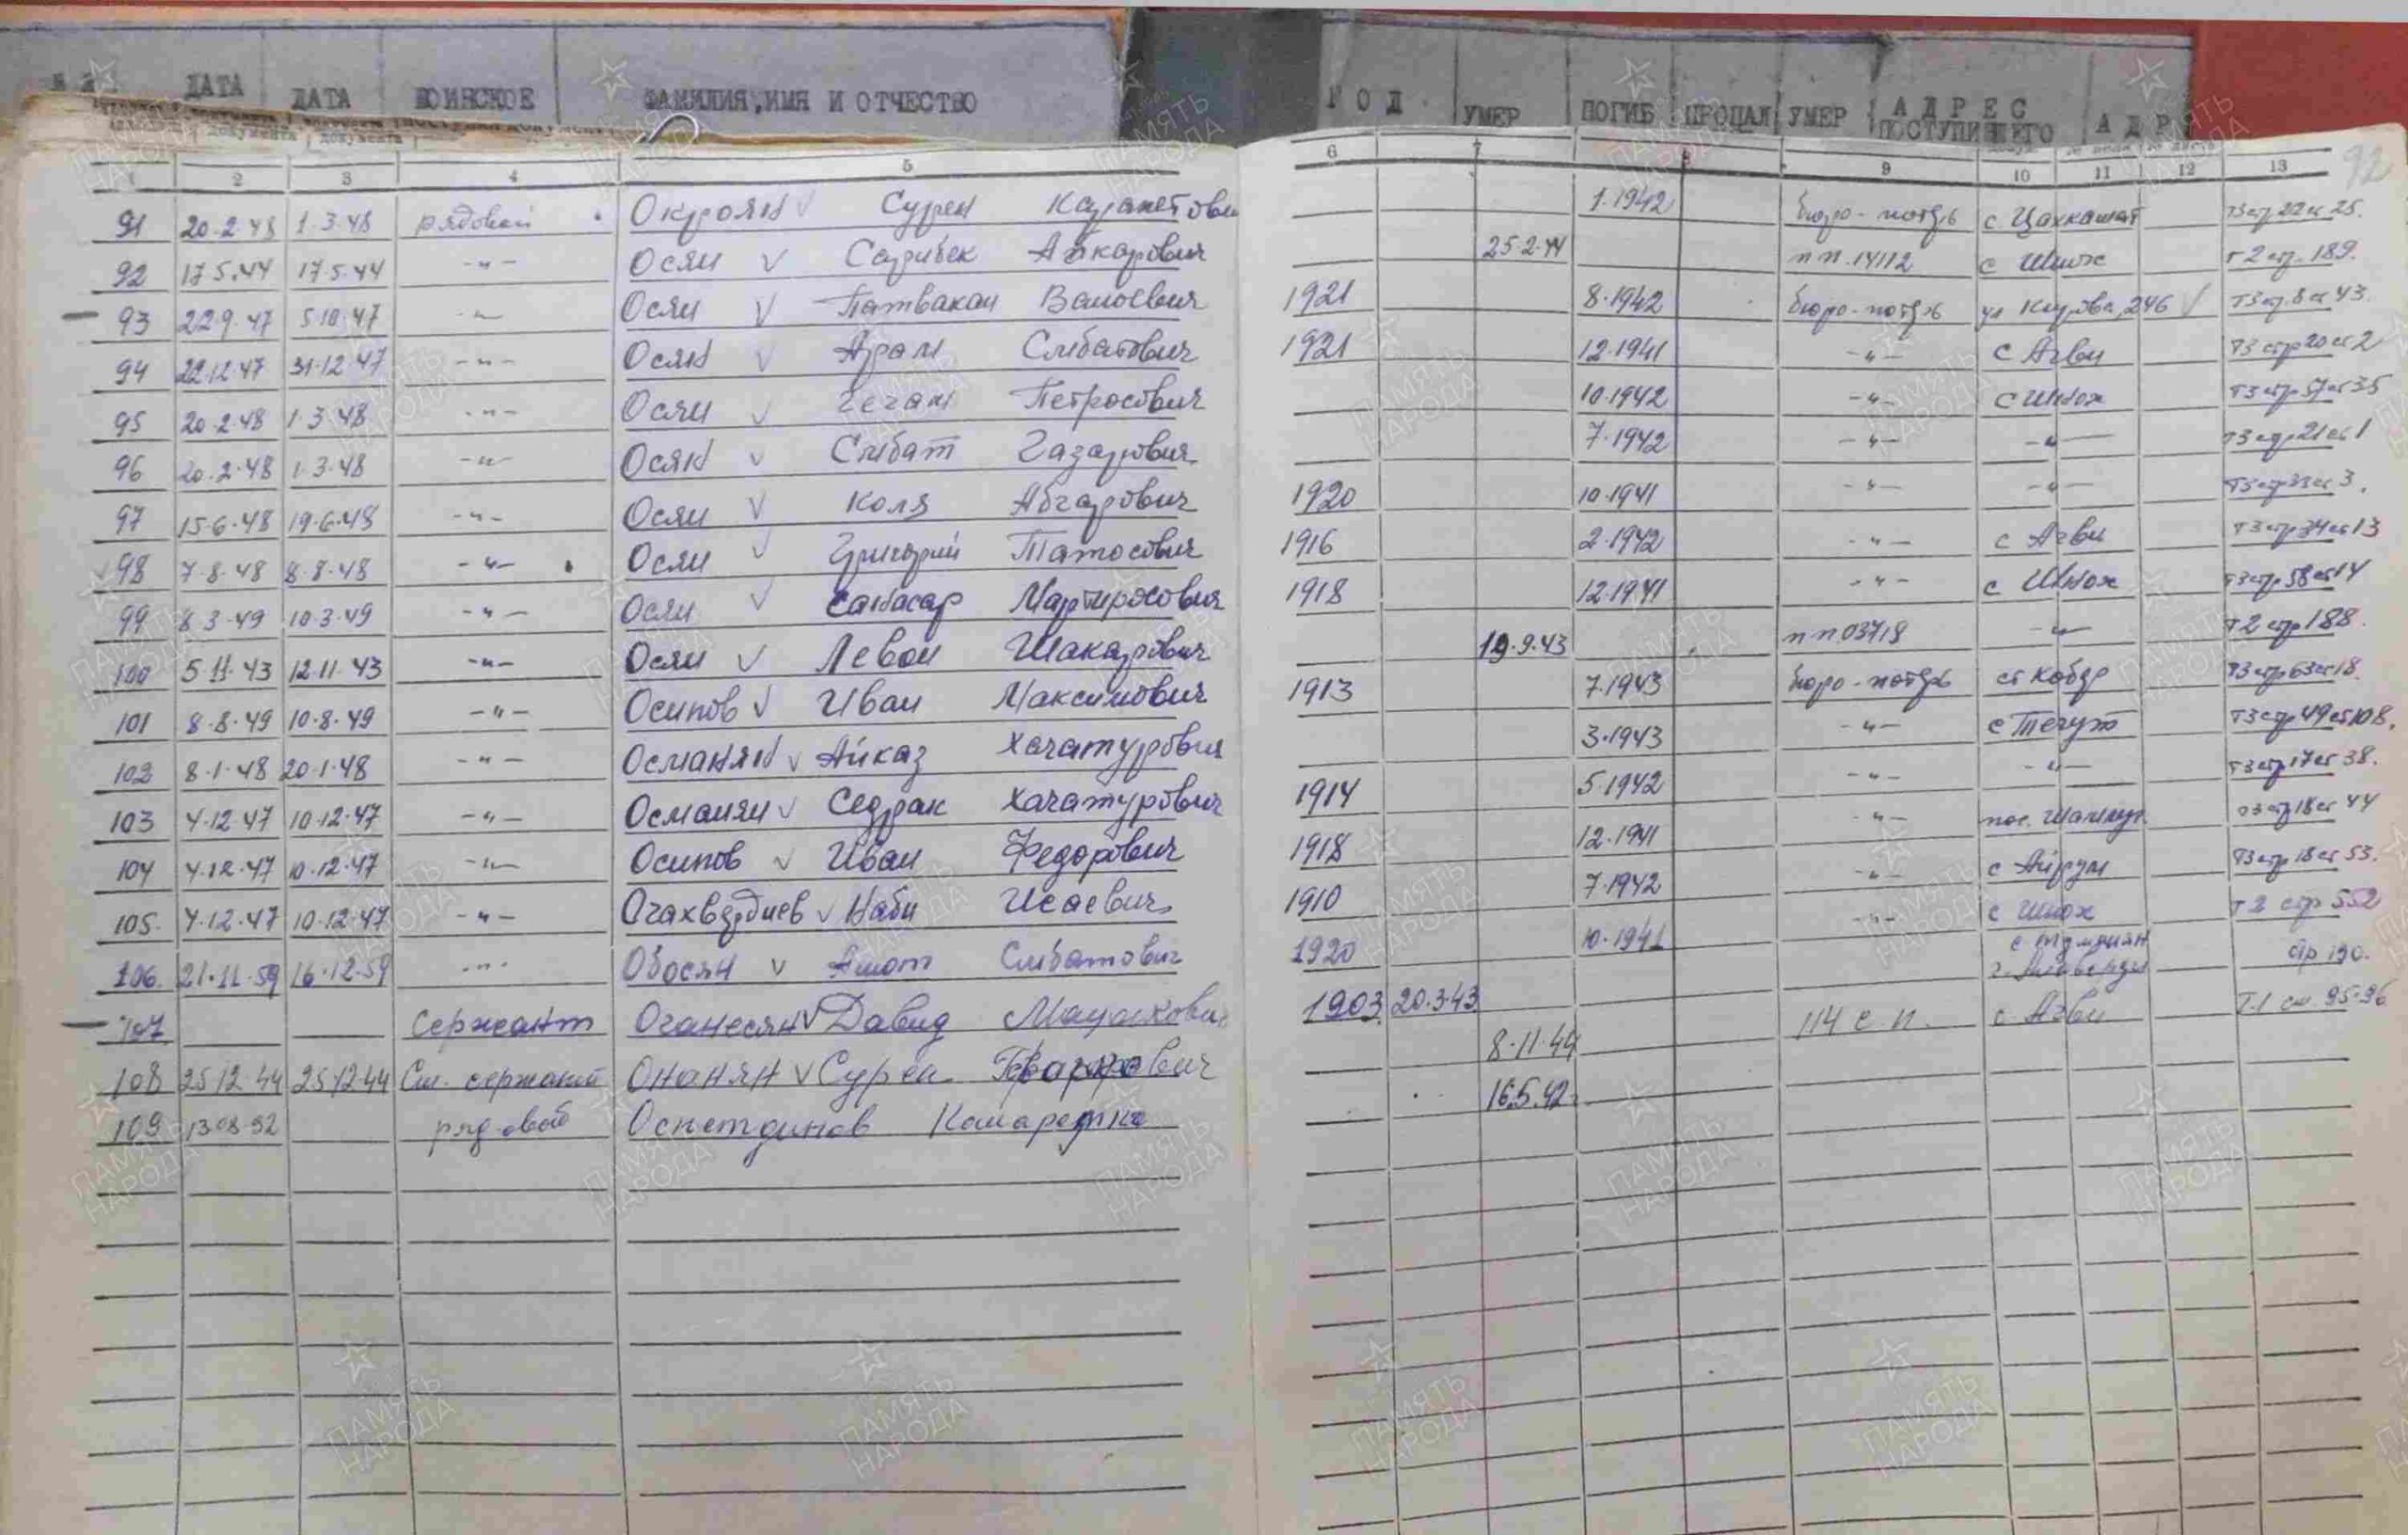 ДАТА ДАТА ВОИНСКОЕ ФАМИЛИЯ, ИМЯ И ОТЧЕСТВО ГОД УМЕР ПОГИБ ПРОПАЛ УМЕР АДРЕС ПОСТУПИВШЕГО АДР
документа документа
1 2 3 4 5 6 7 8 9 10 11 12 13 92
91 20.2.48 1.3.48 рядовой Окроян Сурен 1.1942 бюро-потерь с Цахкашат
92 17.5.44 17.5.44 -"- Осян Сарибек Айкарович 25.2.44 п п.14112 с Шнох т 2 стр. 189.
93 22.9.47 5.10.47 -"- Осян Патвакан Ваноевич 1921 8.1942 бюро-потерь ул Кирова, 246 т3 стр 8 ст 43.
94 22.12.47 31.12.47 -"- Осян Арам Смбатович 1921 12.1941 -"- с Агви т3 стр 20 ст 2
95 20.2.48 1.3.48 -"- Осян Гегам Петросович 10.1942 -"- с Шнох т3 стр 57 ст 35
96 20.2.48 1.3.48 -"- Осян Смбат Газарович 7.1942 -"- -"- т3 стр 21 ст 1
97 15.6.48 19.6.48 -"- Осян Коля Абгарович 1920 10.1941 -"- -"-
98 7.8.48 8.8.48 -"- Осян Григорий Татосович 1916 2.1942 -"- с Агви т3 стр 34 ст 13
99 8.3.49 10.3.49 -"- Осян Мартиросович 1918 12.1941 -"- с Шнох т3 стр 58 ст 14
100 5.11.43 12.11.43 -"- Осян Левон Шакарович 19.9.43 п п 03718 -"- т 2 стр 188.
101 8.8.49 10.8.49 -"- Осипов Иван Максимович 1913 7.1943 бюро-потерь ст Кобер т3 стр 63 ст 18.
102 8.1.48 20.1.48 -"- Османян Айказ Хачатурович 3.1943 -"- с Техут т3 стр 49 ст 108.
103 4.12.47 10.12.47 -"- Османян Седрак Хачатурович 1914 5.1942 -"- -"- т3 стр 17 ст 38.
104 4.12.47 10.12.47 -"- Осипов Иван Федорович 1918 12.1941 -"- пос. Шамлуг т3 стр 18 ст 44
105. 4.12.47 10.12.47 -"- Наби Исаевич 1910 7.1942 -"- с Айрум т3 стр 18 ст 53.
106. 21.11.59 16.12.59 -"- Обосян Ашот Смбатович 1920 10.1941 -"- с Шнох т 2 стр 552
с Туманян
г. Алаверди стр 190.
107 Сержант Оганесян Давид 1903 20.3.43 114 с.п. с Агви
108 25.12.44 25.12.44 Ст. сержант Онанян Сурен 8.11.44
109 рядовой 16.5.42
ПАМЯТЬ НАРОДА